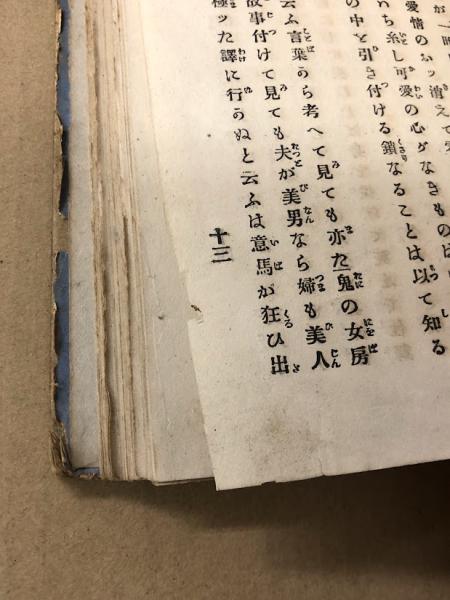 が一時
愛情のふッ消えて
いち糸し可愛の心がなきものは
の中を引き付ける鎖なることは以て知る
云ふ言葉うら考へて見ても亦た「鬼の女房
故事付けて見ても夫が美男なら婦も美人
極ッた譯に行うぬと云ふは意馬が狂ひ出
十三